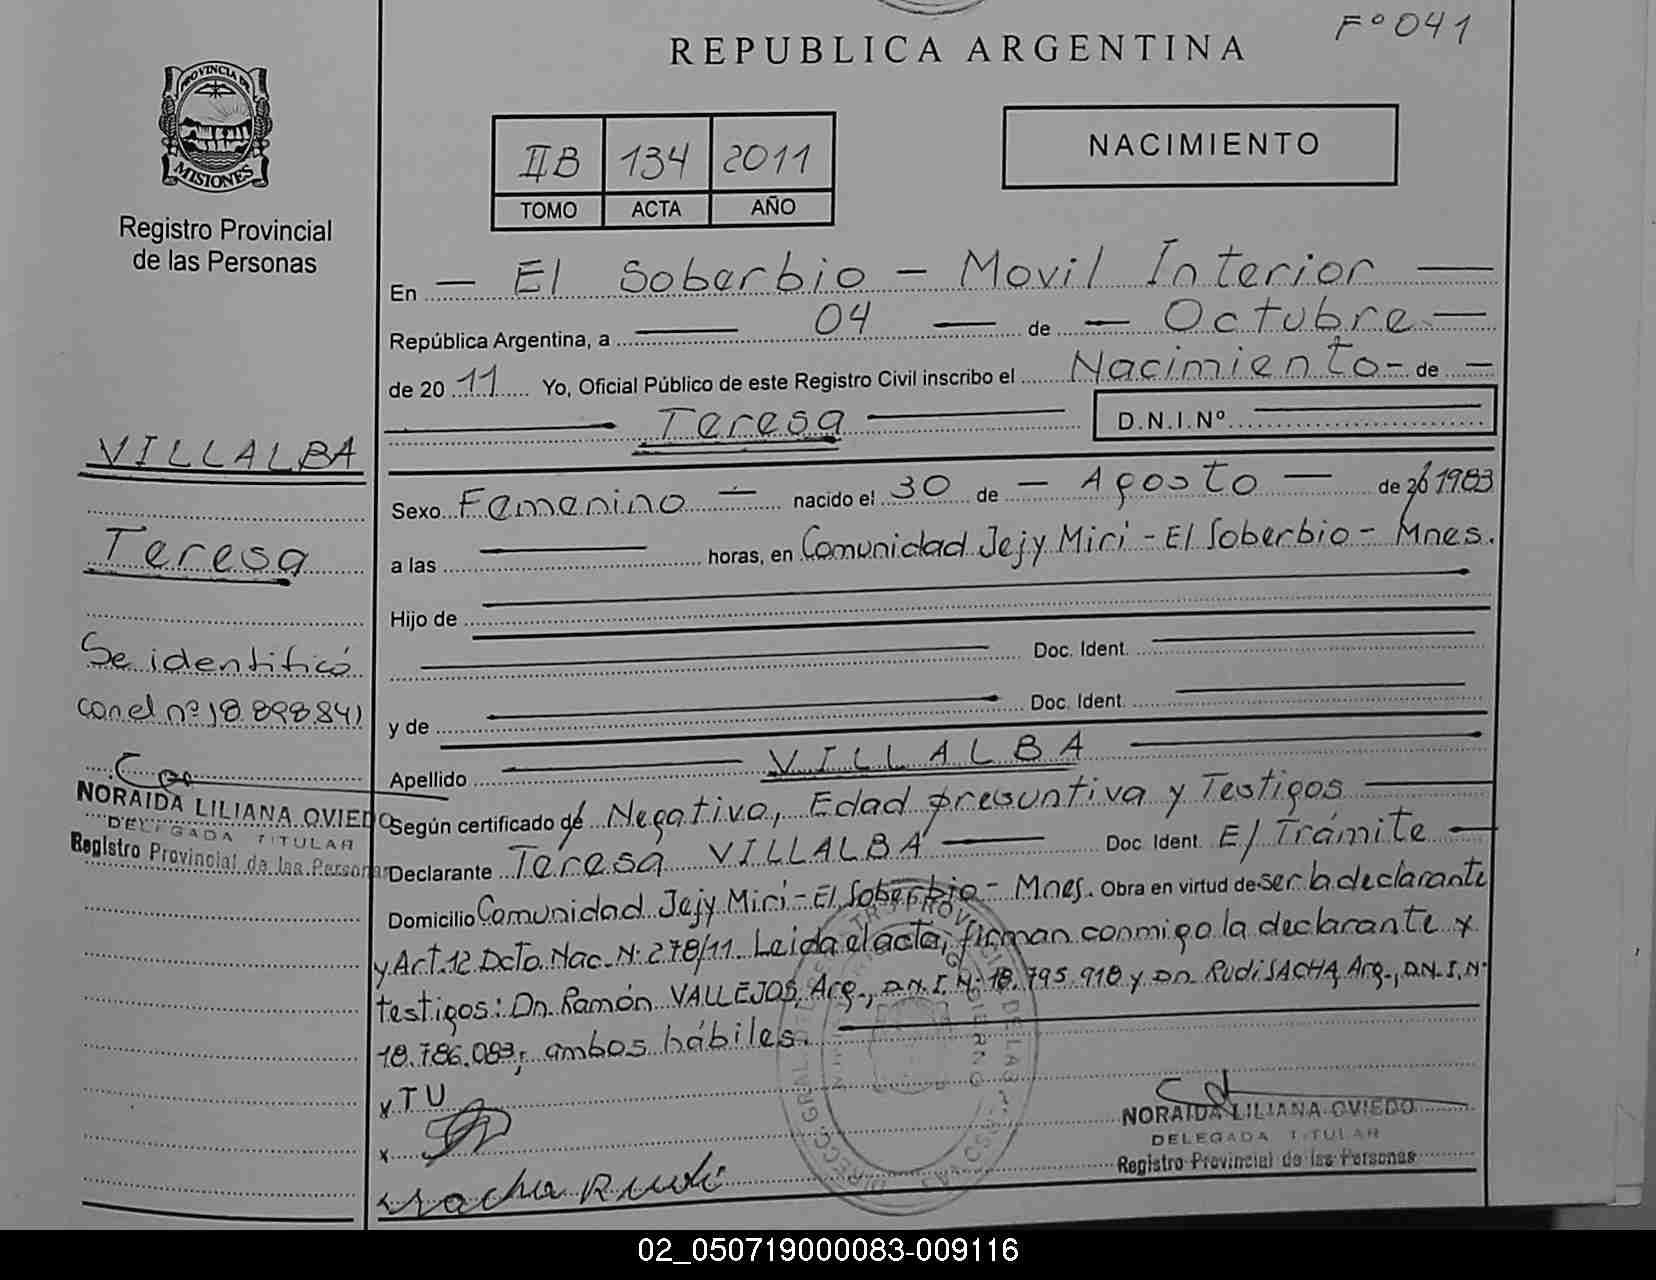 Fº 041
REPUBLICA ARGENTINA
PROVINCIA DE
MISIONES
Registro Provincial
de las Personas
IIB 134 2011
TOMO ACTA AÑO
NACIMIENTO
En - El Soberbio - Movil Interior
República Argentina, a 04 de - Octubre -
de 20 11 Yo, Oficial Público de este Registro Civil inscribo el Nacimiento - de -
Teresa D.N.I.Nº
VILLALBA
Teresa
Se identificó
con el nº 18.898.841
NORAIDA LILIANA OVIEDO
DELEGADA TITULAR
Registro Provincial de las Personas
Sexo Femenino - nacido el 30 de - Agosto - de 1983
a las horas, en Comunidad Jejy Miri - El Soberbio - Mnes.
Hijo de
Doc. Ident.
y de Doc. Ident.
Apellido VILLALBA
Según certificado de Negativo, Edad presuntiva y Testigos
Declarante Teresa VILLALBA Doc. Ident. E/ Trámite -
Domicilio Comunidad Jejy Miri - El Soberbio - Mnes. Obra en virtud de ser la declarante
y Art. 12 Dcto. Nac. N: 278/11. Leida el acta, firman conmigo la declarante y
testigos: Dn. Ramón VALLEJOS, Arg., D.N.I. N: 18.795.918 y Dn. Rudi SACHA, Arg., D.N.I. N:
18.786.083, ambos hábiles.
x TU
x
x Sacha Rudi
NORAIDA LILIANA OVIEDO
DELEGADA TITULAR
Registro Provincial de las Personas
02_050719000083-009116